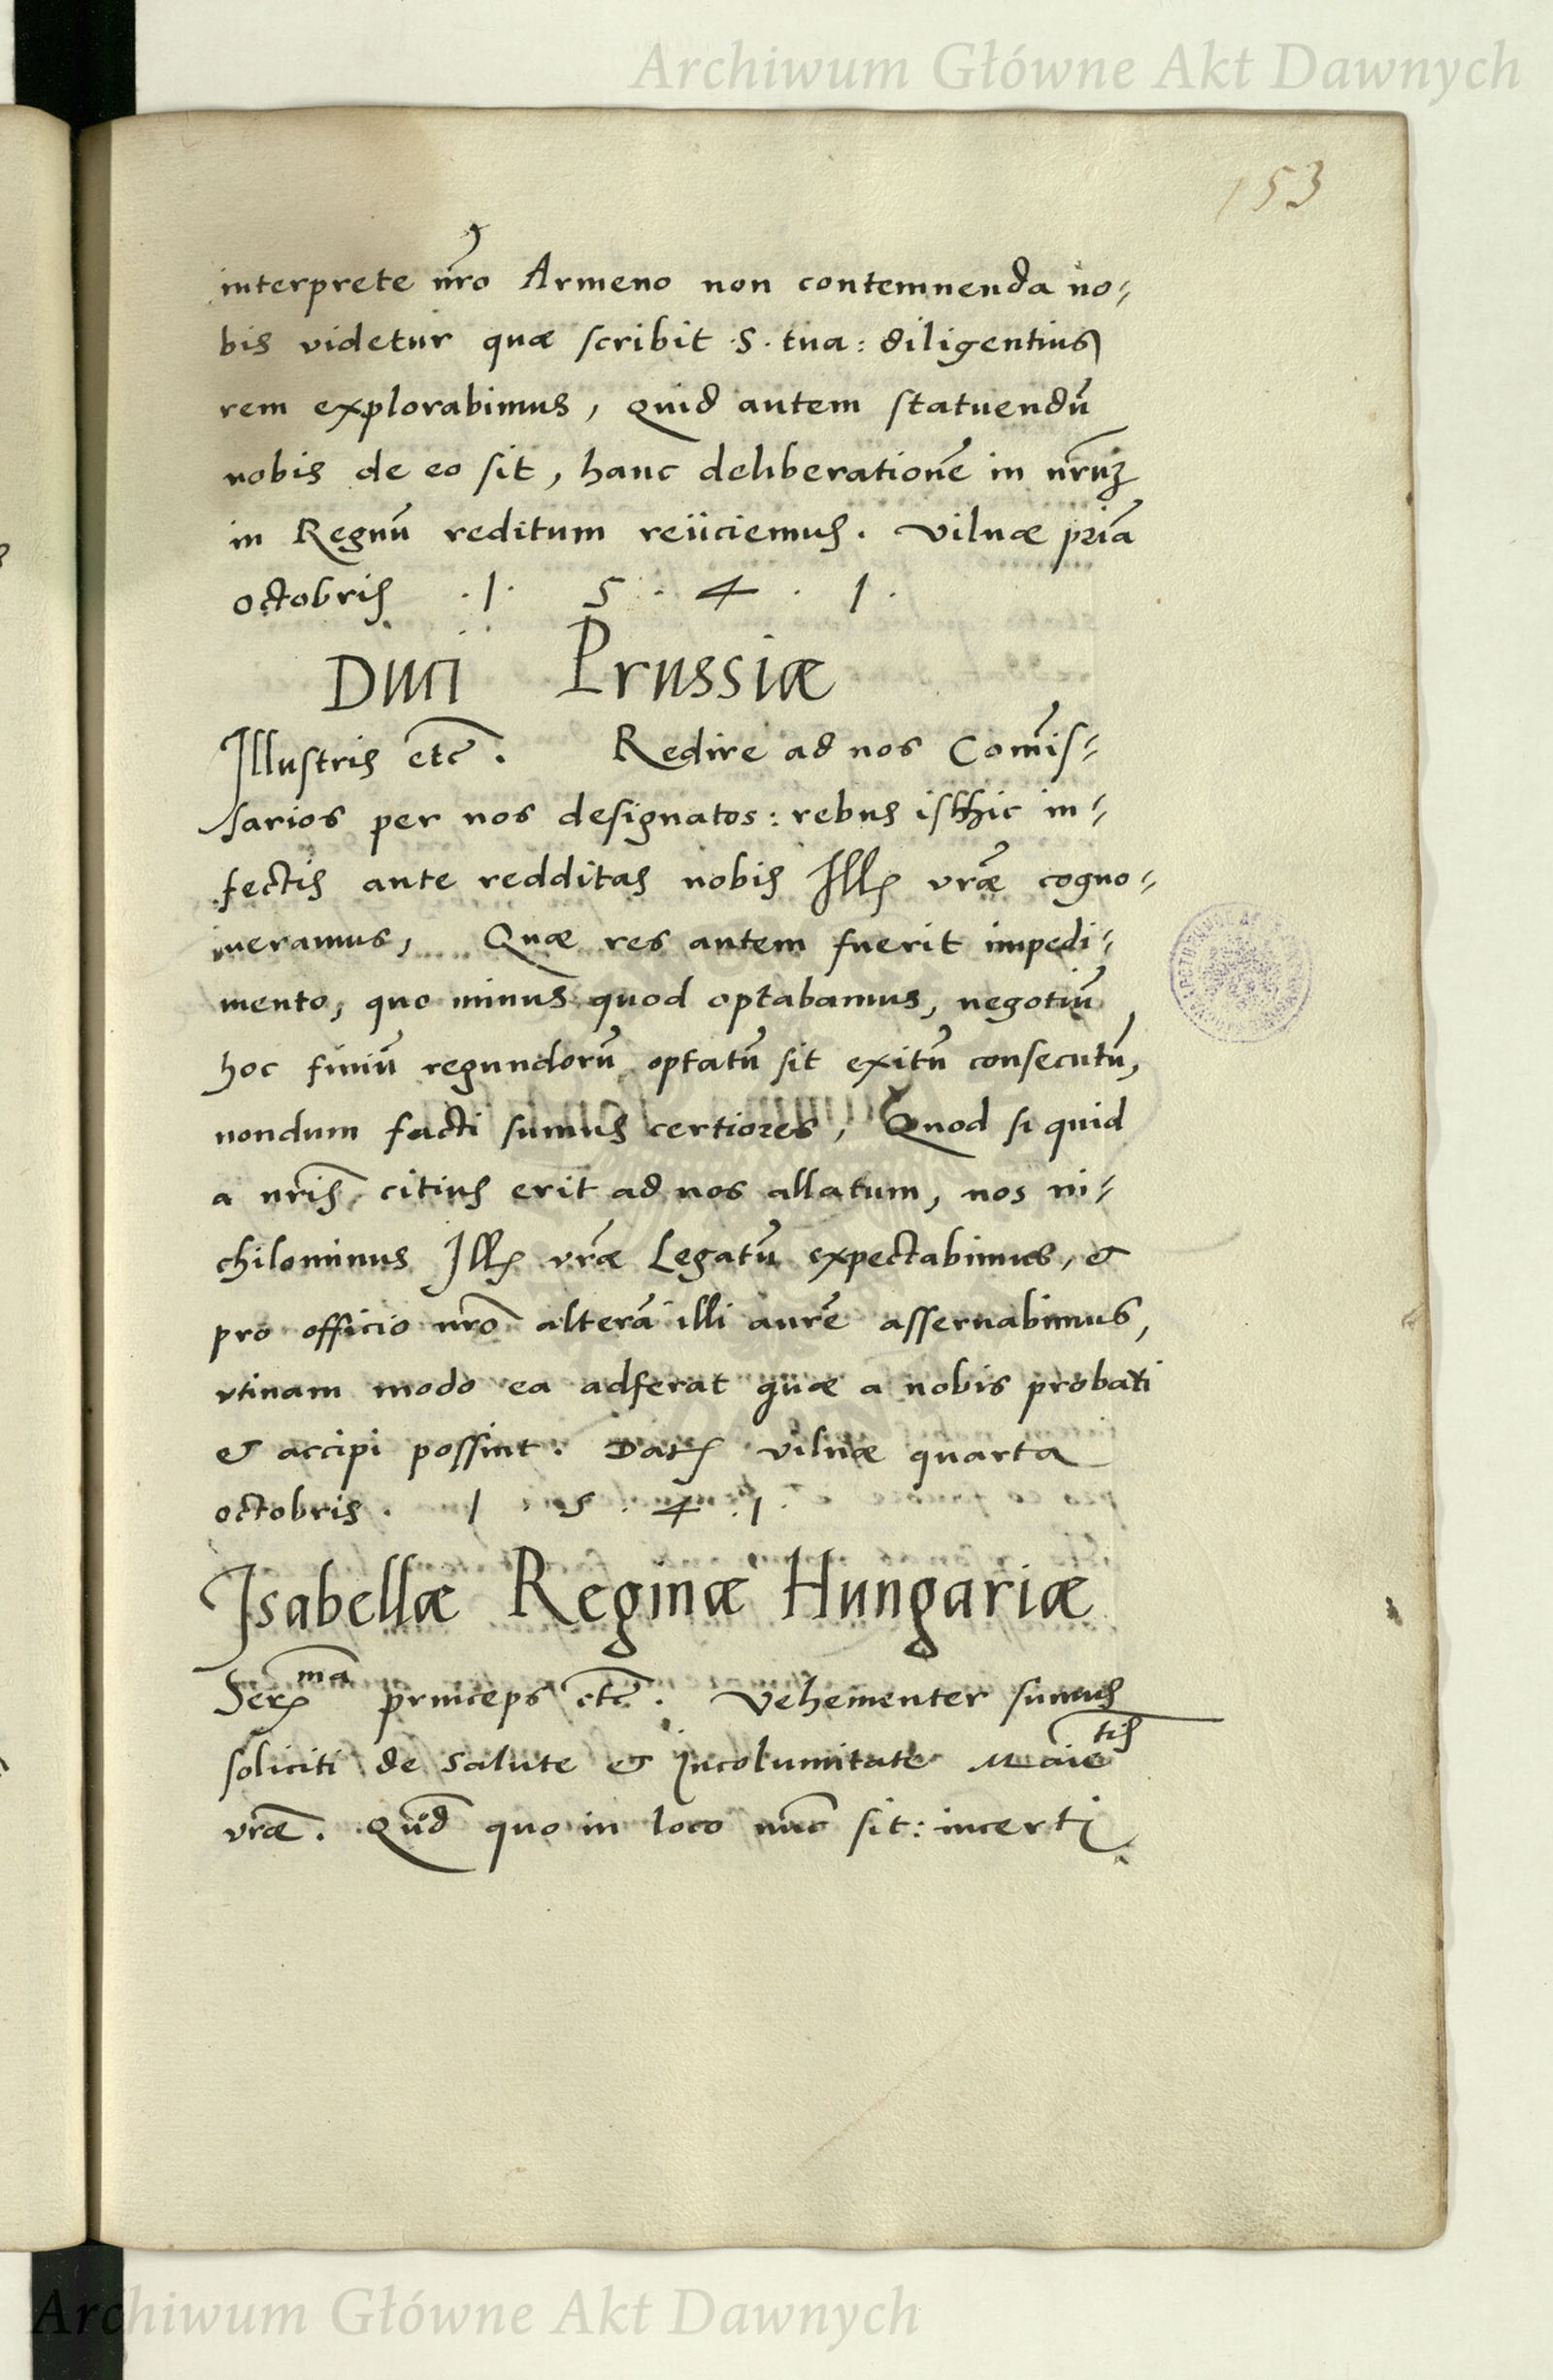 Archiwum Główne Akt Dawnych
153
interprete nr̃o Armeno non contemnenda no-
bis videtur quæ scribit .S. tua: diligentius
rem explorabimus, quid autem statuendũ
nobis de eo sit, hanc deliberationẽ in nr̃uȝ
in Regnũ reditum reiiciemus. Vilnæ pri͂a
octobris .1. 5 . 4 . 1.
Duci Prussiæ
Illustris etc̃. Redire ad nos Com̃is-
sarios per nos designatos: rebus isthic in-
fectis ante redditas nobis Ill. vr̃æ cogno-
veramus, Quæ res autem fuerit impedi-
mento, quo minus quod optabamus, negotiũ
hoc finiũ regundorũ optatũ sit exitũ consecutũ,
nondum facti sumus certiores, Quod si quid
a nr̃is citius erit ad nos allatum, nos ni-
chilominus Ill. vr̃æ Legatũ expectabimus, &
pro officio nr̃o alterã illi aurẽ asservabimus,
vtinam modo ea adferat quæ a nobis probari
& accipi possint. Dat. Vilnæ quarta
octobris. 1 . 5 . 4 . 1.
Isabellæ Reginæ Hungariæ
Ser.ma princeps etc̃. Vehementer sumus
soliciti de salute & incolumitate Maie͂tis
vr̃æ. Quid̃ quo in loco nũc sit: incerti
Archiwum Główne Akt Dawnych